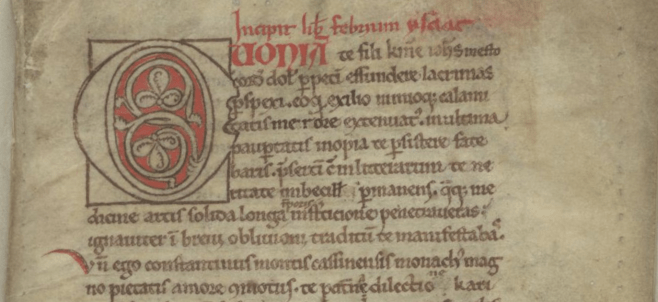 Incipit lib̄ febrium ysaac
QUONIĀ te fili km̄e ioh̄s mesto
dol' effundere lacrimas
ꝓspexi. eoq; exilio nimioq; calami
tatis merore extenuat'. multima
paup̄tatis inopia te p̄sistere fate
baris. p̄serti c̄ in litterarum te ne
imbecill' p̄manens. q̄q; me
dicine artis solida longa inspectione penetraueras.
ignauiter ī breui obliuioni traditū te manifestaba.
Vn̄ ego constantinus montis cassinensis monach' mag
no pietatis amore motus. te dilectio kari